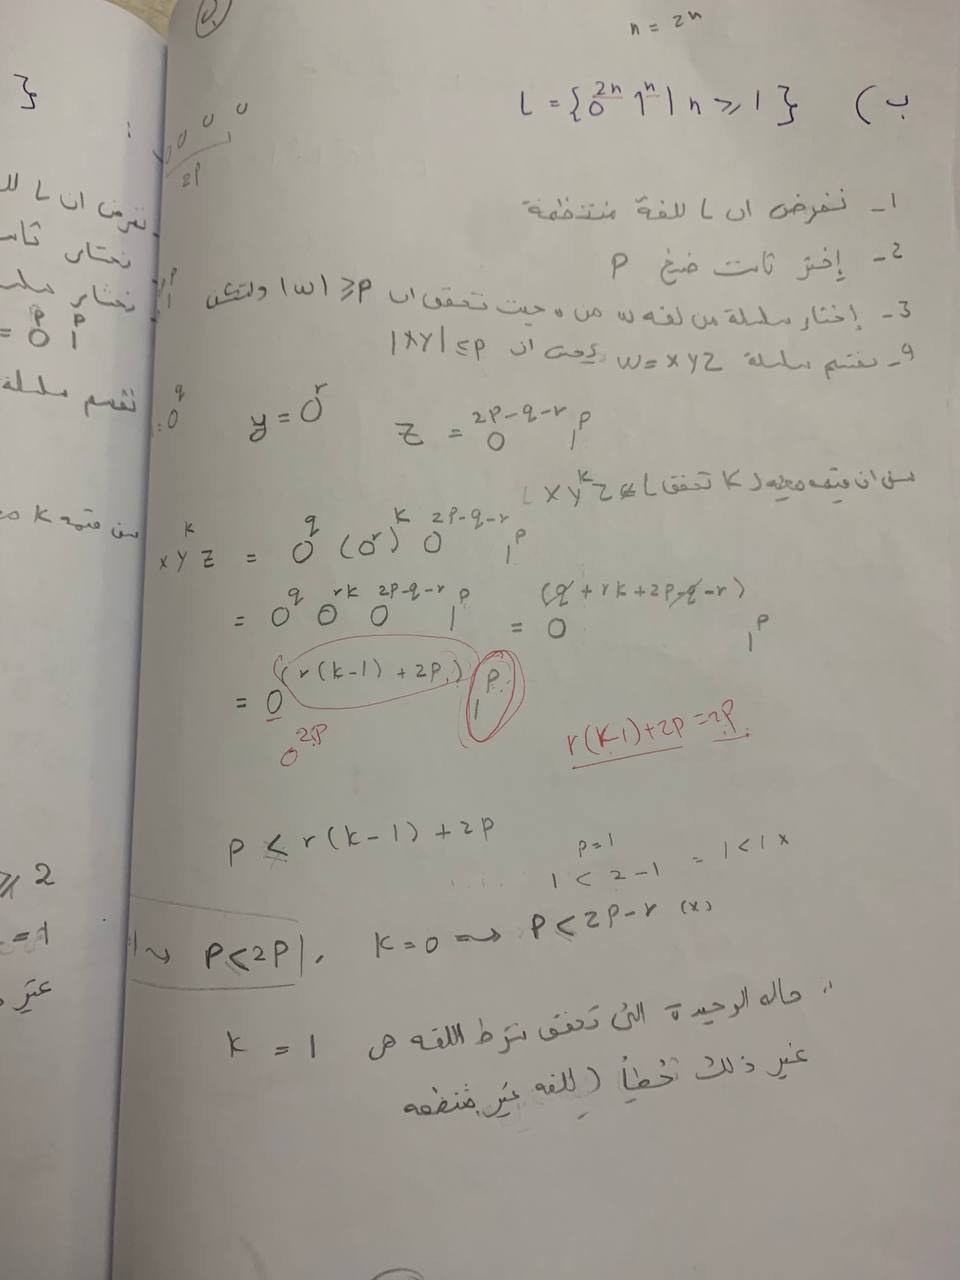 n = 2n
ب) L = {0^2n 1^n | n ⩾ 1}
2P
1- نفرض ان L للغة منتظمة
2- إختر ثابت ضخ P
3- إختار سلسلة من لغه w من حيث تحقق ان |w| ⩾ P ولتكن
4- نقسم سلسلة w = xyz بحيث ان |xy| ⩽ P
0^q y = 0^r z = 0^2P-q-r 1^P
K تحقق x y^k z ∉ L
x y^k z = 0^q (0^r)^k 0^2P-q-r 1^P
= 0^q 0^rk 0^2P-q-r 1^P = 0^(q + rk + 2P - q - r) 1^P
= 0^(r(k-1) + 2P) 1^P
0^2P
r(k-1)+2P = 2P
P < r(k-1) + 2P
P=1
1 < 2-1 = 1 < 1 x
P<2P K = 0 ⇝ P < 2P-r (x)
∴ حاله الوحيدة التى تحقق شرط اللغه هى K = 1
غير ذلك خطأ (للغه غير منتظمه
{
نفرض ان L لل
نختار ثابت
نختار سلسلة
= 0^P 1^P
نقسم سلسلة
⩾ 2
= 1
غير